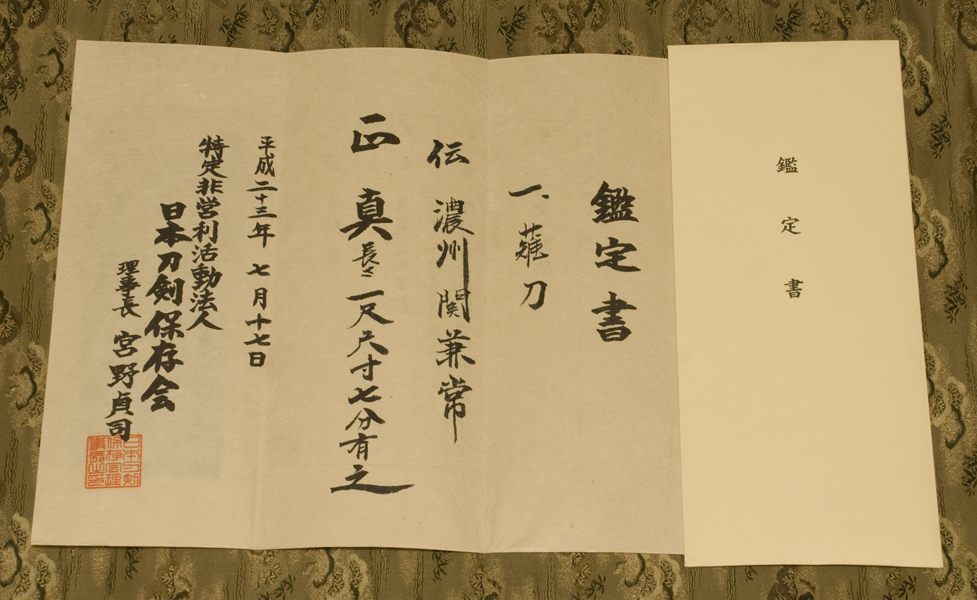 鑑定書
鑑定書
一、薙刀
伝 濃州関兼常
正真 長さ一尺尺寸七分有之
平成二十三年 七月十七日
特定非営利活動法人
日本刀剣保存会
理事長 宮野貞司